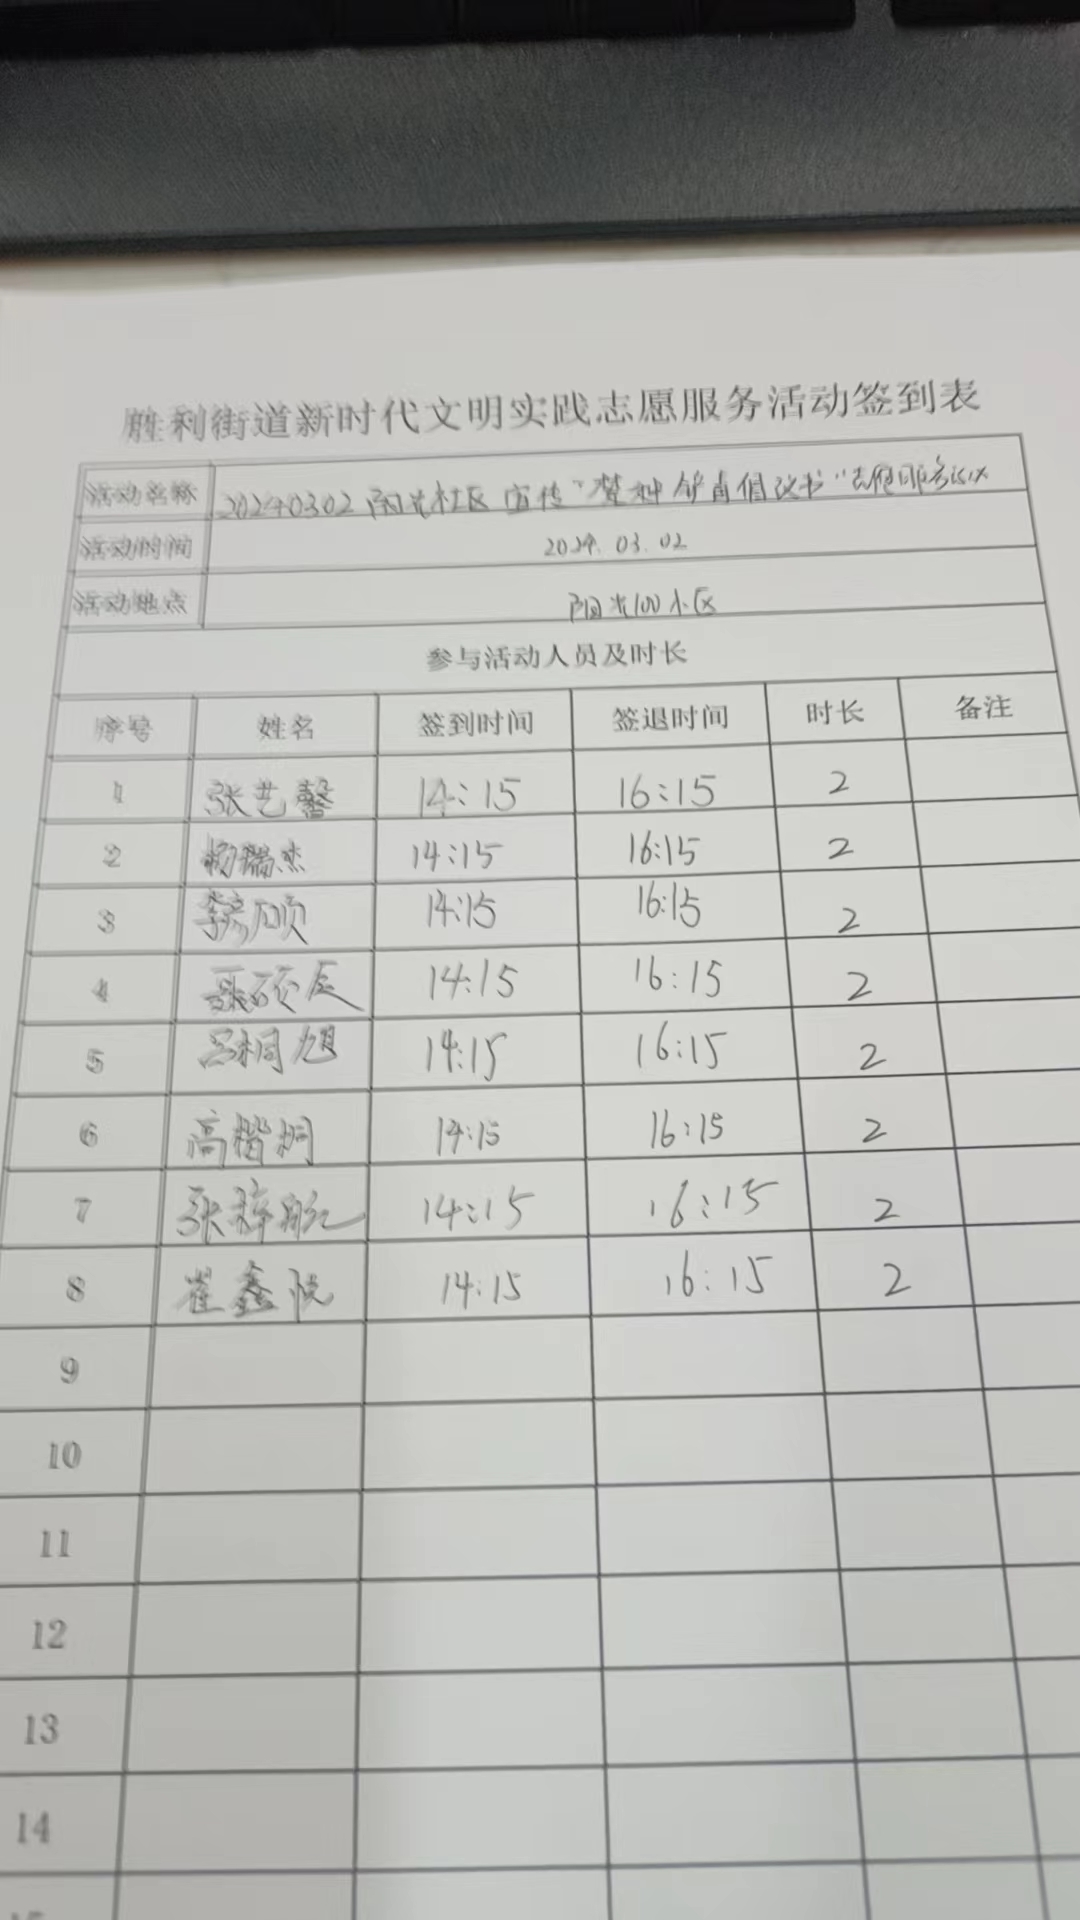 胜利街道新时代文明实践志愿服务活动签到表
活动名称 20240302阳光社区宣传"禁种铲毒倡议书"志愿服务活动
活动时间 2024.03.02
活动地点 阳光100小区
参与活动人员及时长
序号 姓名 签到时间 签退时间 时长 备注
1 张艺馨 14:15 16:15 2
2 杨瑞杰 14:15 16:15 2
3 李彦颀 14:15 16:15 2
4 聂硕辰 14:15 16:15 2
5 吕桐旭 14:15 16:15 2
6 高楷桐 14:15 16:15 2
7 张梓航 14:15 16:15 2
8 崔鑫悦 14:15 16:15 2
9
10
11
12
13
14